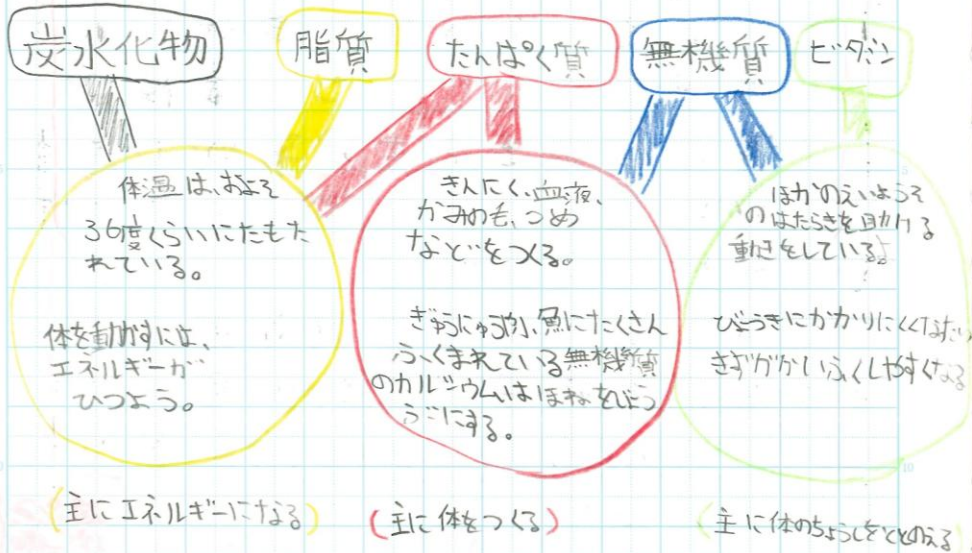 炭水化物
脂質
たんぱく質
無機質
ビタミン
体温は、およそ
36度くらいにたもた
れている。
体を動かすには、
エネルギーが
ひつよう。
(主にエネルギーになる)
きんにく、血液、
かみの毛、つめ
などをつくる。
ぎゅうにゅうや、魚にたくさん
ふくまれている無機質
のカルシウムはほねをじょう
ぶにする。
(主に体をつくる)
ほかのえいようそ
のはたらきを助ける
動きをしている。
びょうきにかかりにくくなったり
きずがかいふくしやすくなる
(主に体のちょうしをととのえる)